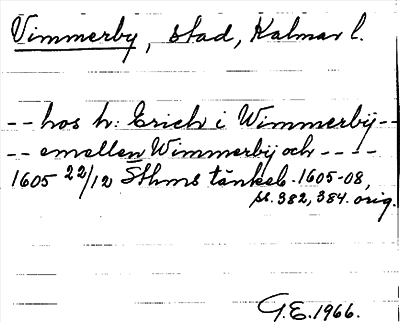 Vimmerby, stad, Kalmar l.
-- hos h: Erich i Wimmerbÿ --
-- emellen Wimmerbÿ och ----
1605 22/12 Sthms tänkeb. 1605-08,
s. 382, 384. orig.
G.E. 1966.